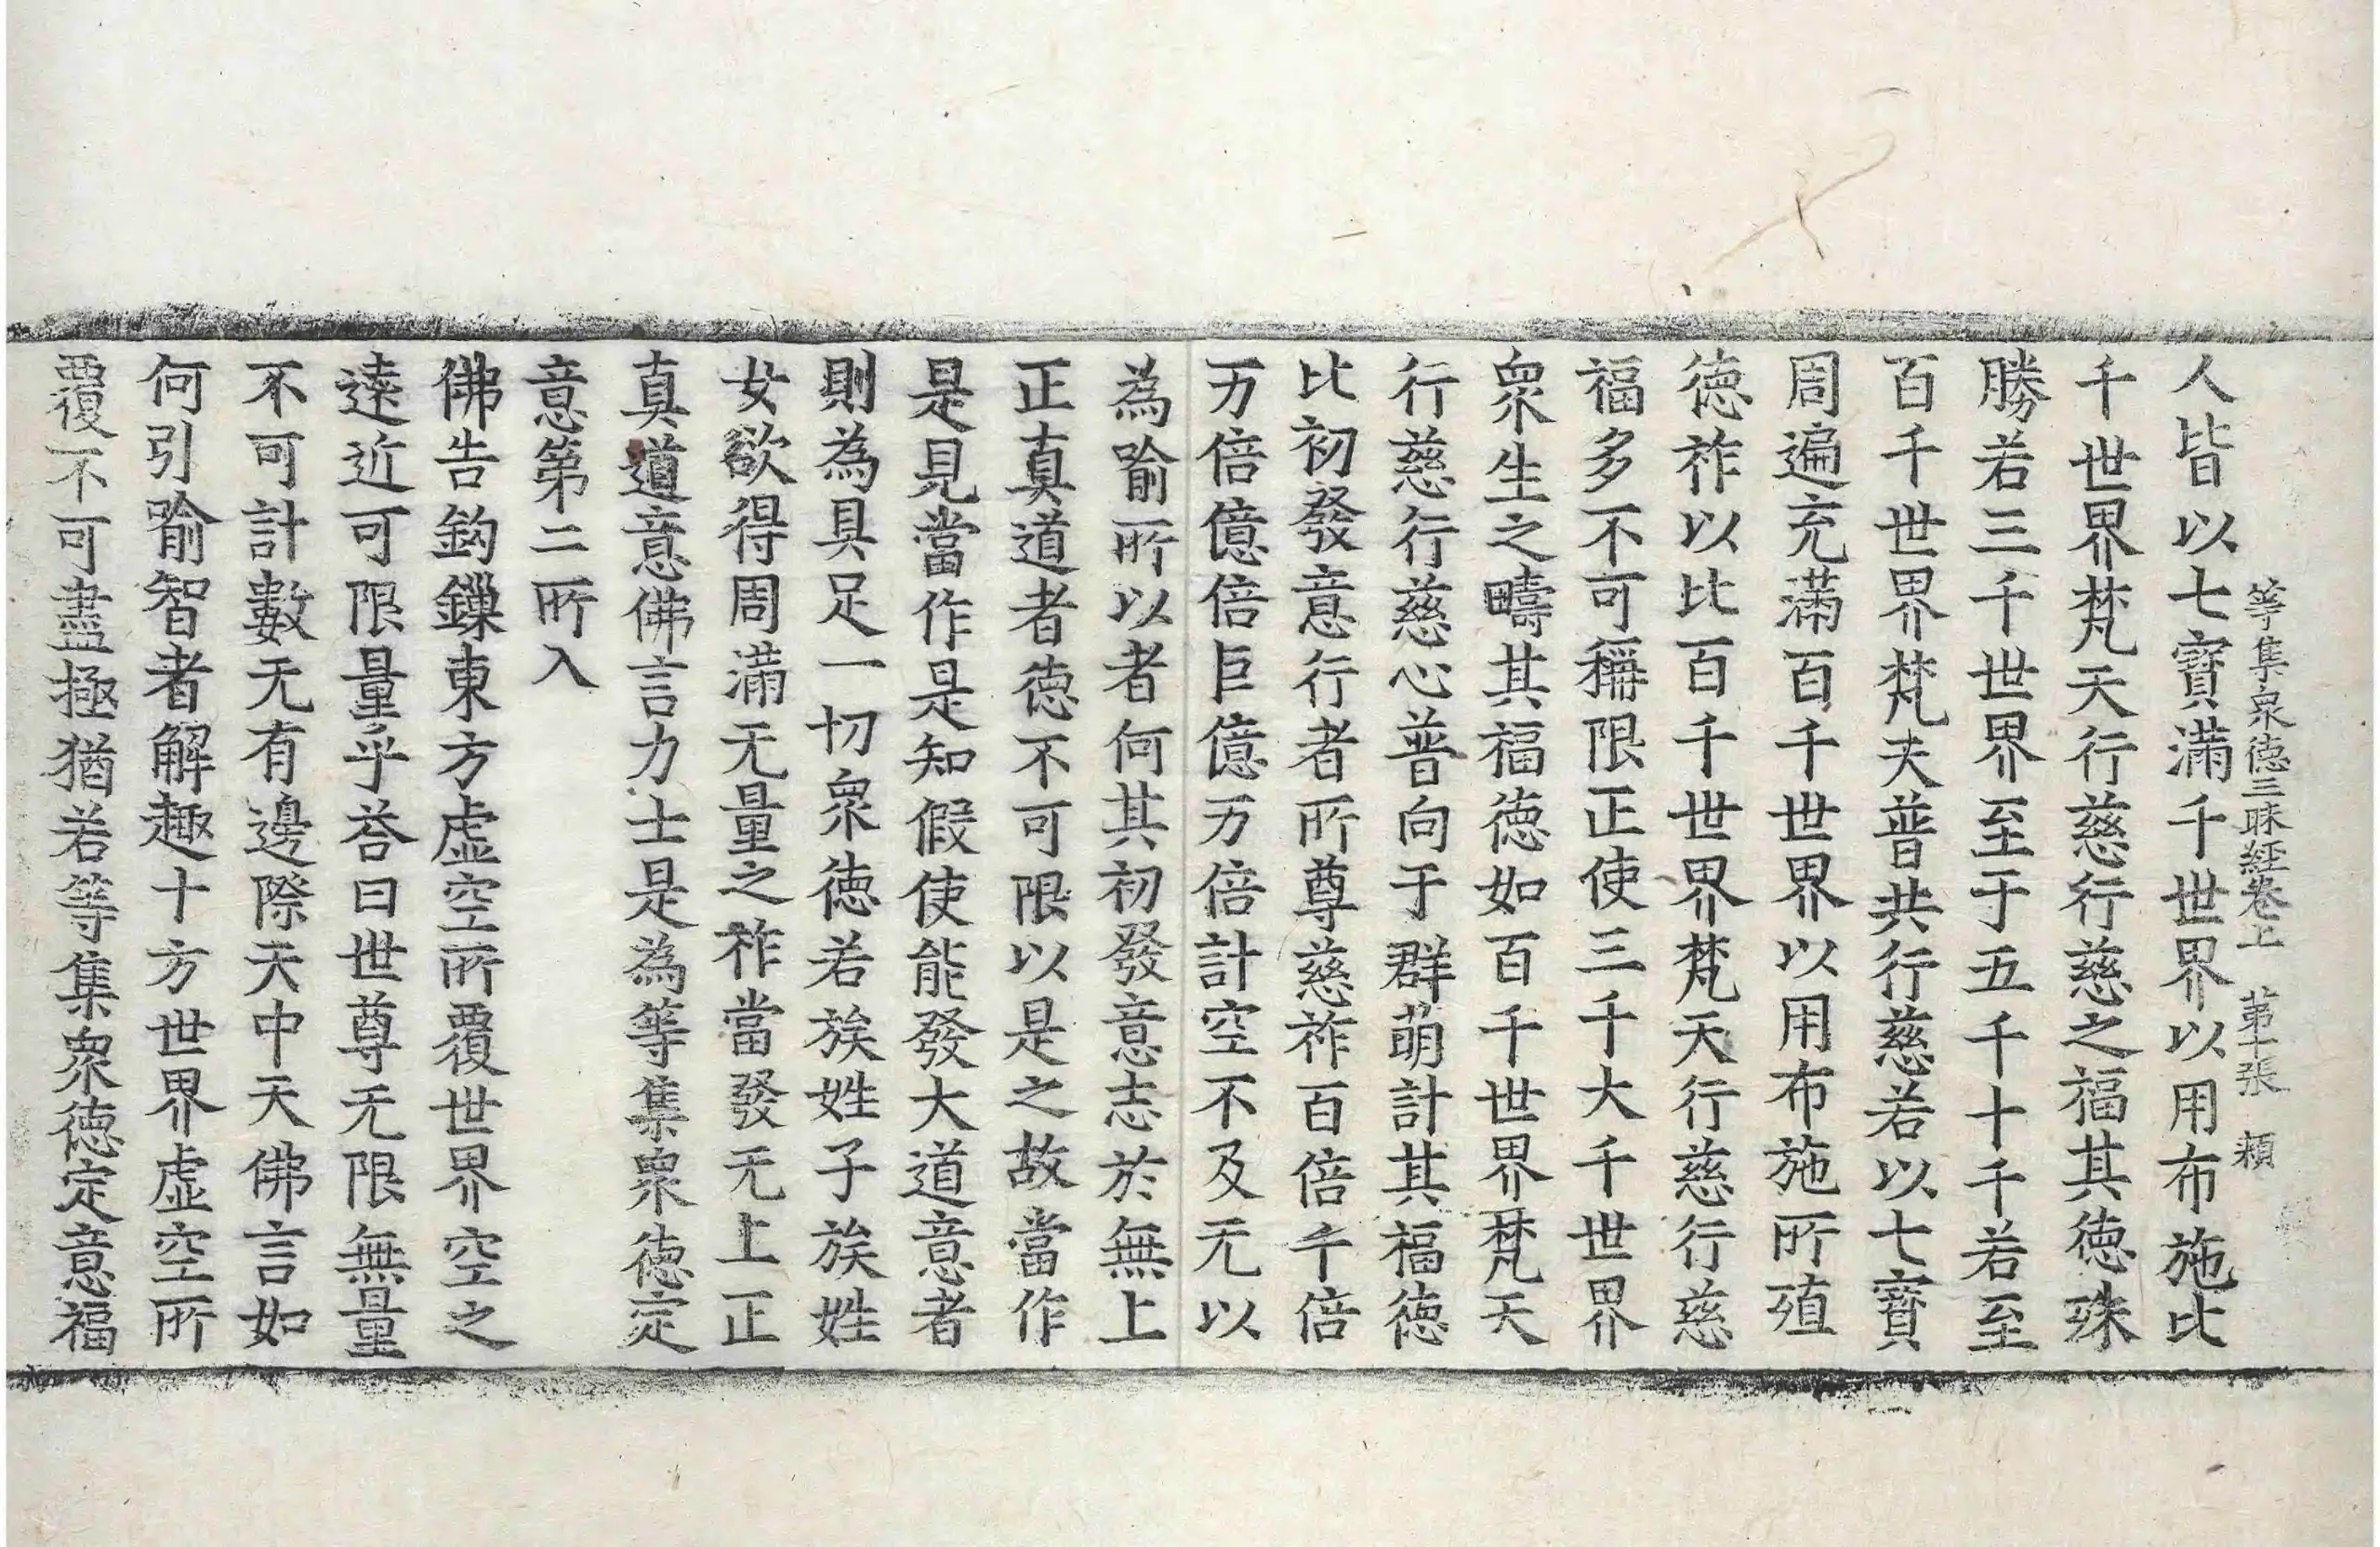 等集衆德三昧經卷上 第十張 頼
人皆以七寶滿千世界以用布施比
千世界梵天行慈行慈之福其德殊
勝若三千世界至于五千十千若至
百千世界梵夫普共行慈若以七寶
周遍充滿百千世界以用布施所殖
德祚以比百千世界梵天行慈行慈
福多不可稱限正使三千大千世界
衆生之疇其福德如百千世界梵天
行慈行慈心普向于群萌計其福德
比初發意行者所尊慈祚百倍千倍
万倍億倍巨億万倍計空不及无以
為喻所以者何其初發意志於無上
正真道者德不可限以是之故當作
是見當作是知假使能發大道意者
則為具足一切衆德若族姓子族姓
女欲得周滿无量之祚當發无上正
真道意佛言力士是為等集衆德定
意第二所入
佛告鈎鏁東方虛空所覆世界空之
遠近可限量乎荅曰世尊无限無量
不可計數无有邊際天中天佛言如
何引喻智者解趣十方世界虛空所
覆不可盡極猶若等集衆德定意福